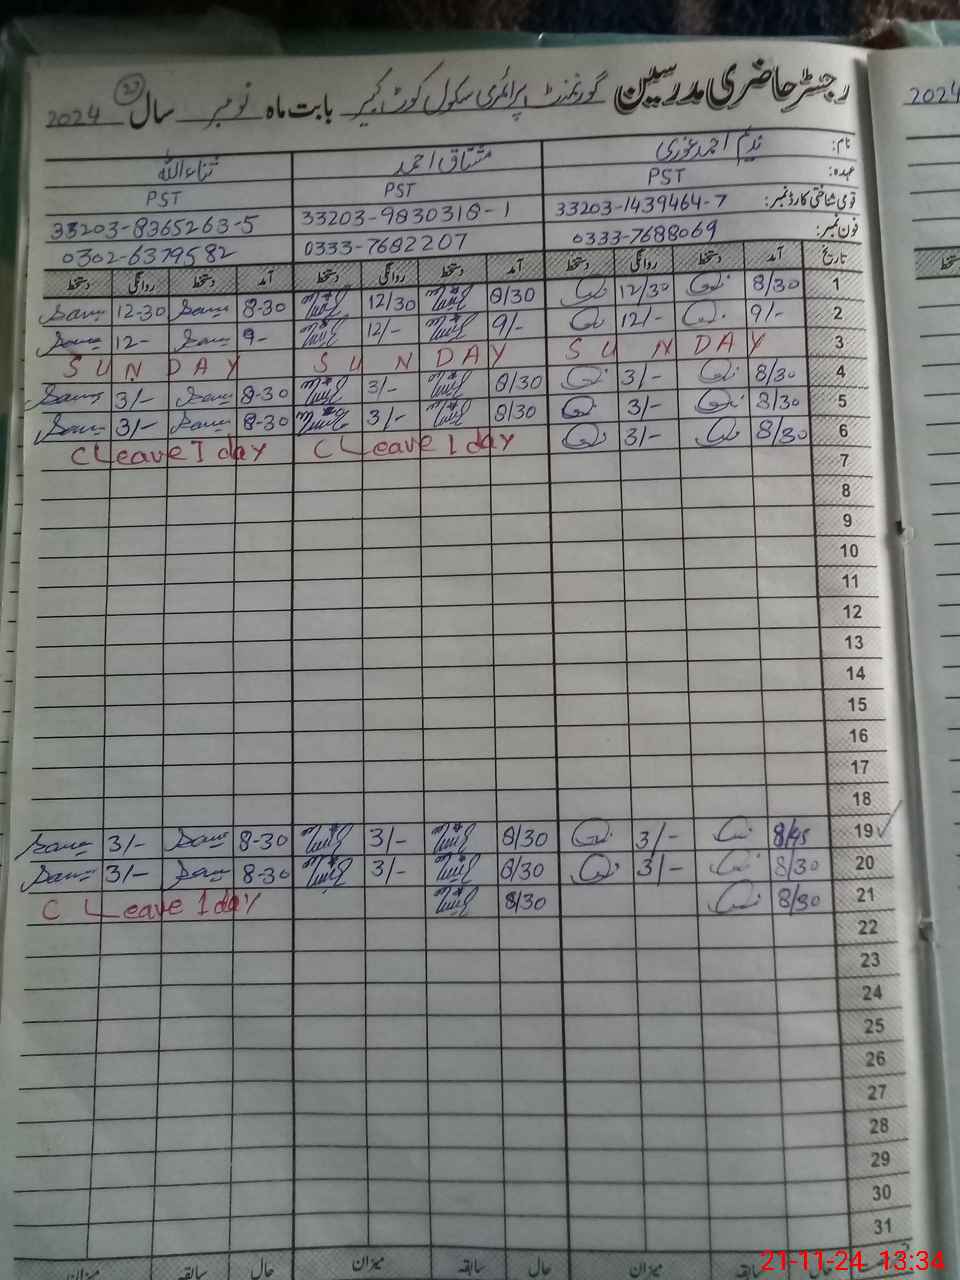 رجسٹر حاضری مدرسین گورنمنٹ پرائمری سکول کوٹ کبیر بابت ماہ نومبر سال 2024
22
2024
نام: ندیم احمد غوری مشتاق احمد ثناء اللہ
عہدہ: PST PST PST
قومی شناختی کارڈ نمبر: 33203-1439464-7 33203-9830318-1 33203-8365263-5
فون نمبر: 0333-7688069 0333-7682207 0302-6379582
تاریخ آمد دستخط روانگی دستخط آمد دستخط روانگی دستخط آمد دستخط روانگی دستخط
1 8/30 12/30 8/30 12/30 8-30 12-30
2 9/- 12/- 9/- 12/- 9- 12-
3 SUNDAY SUNDAY SUNDAY
4 8/30 3/- 8/30 3/- 8-30 3/-
5 8/30 3/- 8/30 3/- 8-30 3/-
6 8/30 3/- C Leave 1 day C Leave 1 day
7
8
9
10
11
12
13
14
15
16
17
18
19 8/45 3/- 8/30 3/- 8-30 3/-
20 8/30 3/- 8/30 3/- 8-30 3/-
21 8/30 8/30 C Leave 1 day
22
23
24
25
26
27
28
29
30
31
سابقہ میزان حال سابقہ میزان حال سابقہ میزان
21-11-24 13:34